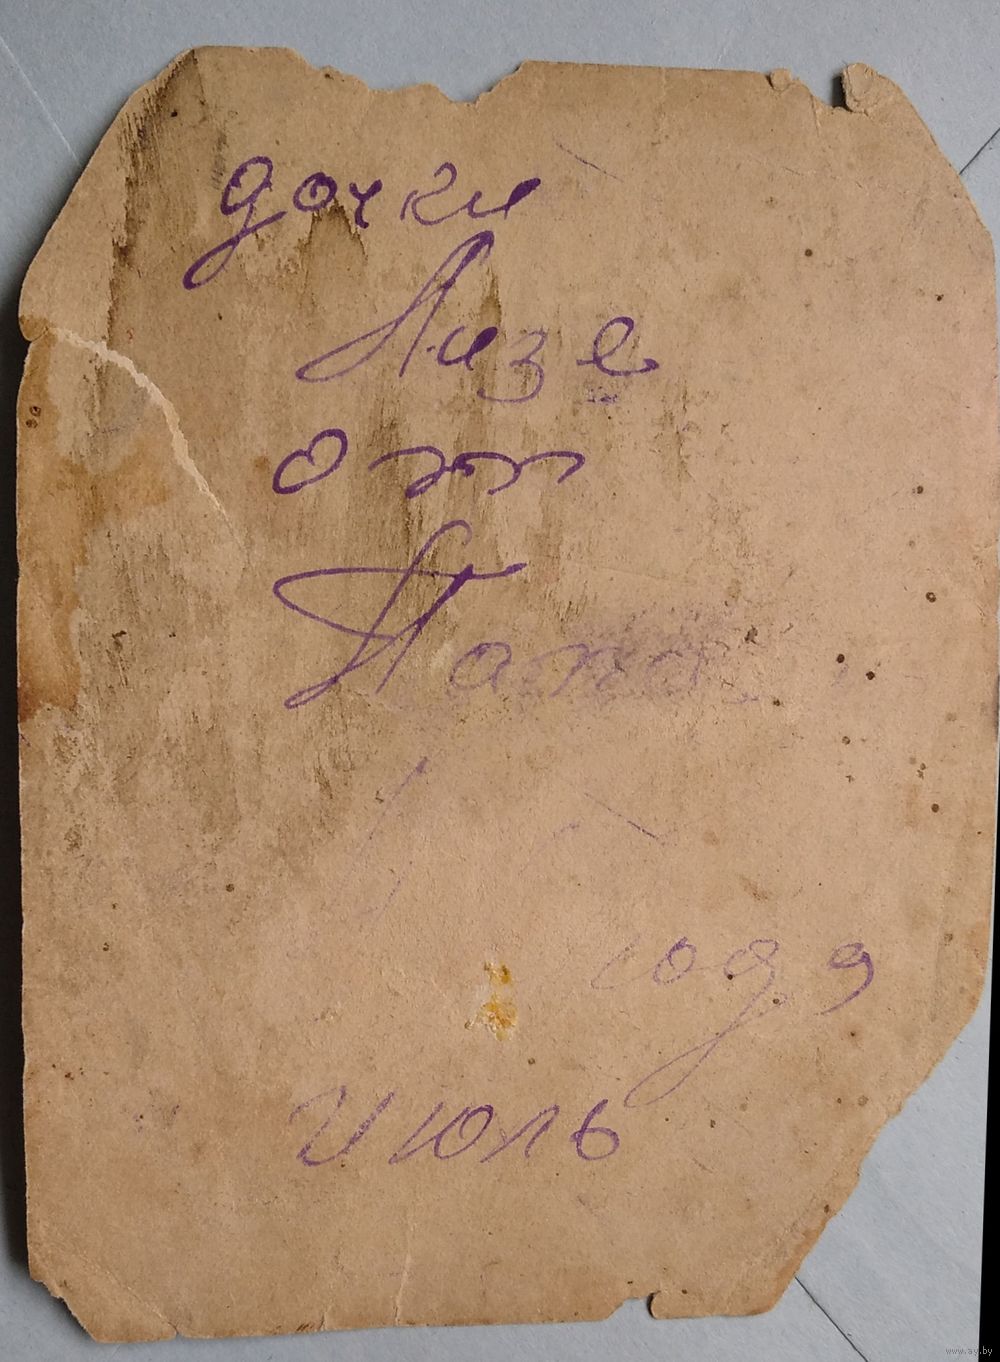 дочки
Лизе
от
Папа
года
июль
www.ay.by